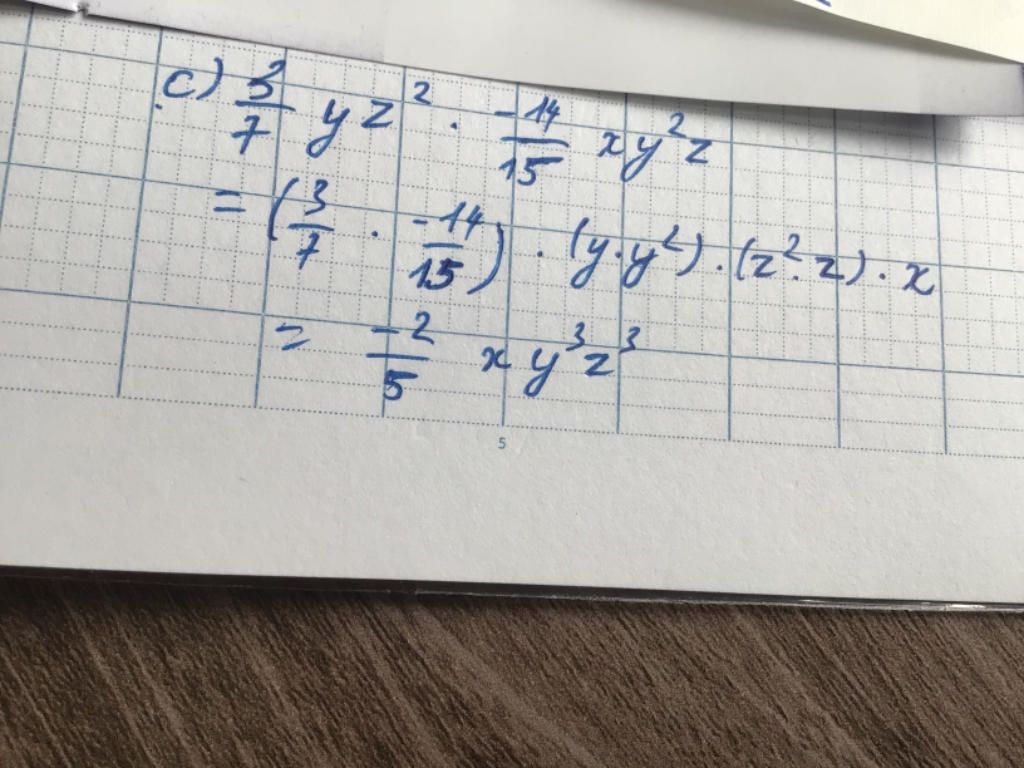 c) 3/7 yz² · -14/15 xy²z
= (3/7 · -14/15) · (y·y²) · (z²·z) · x
= -2/5 xy³z³
5